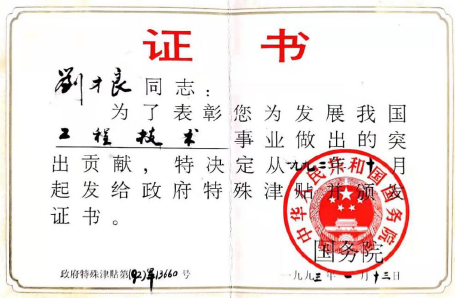 证书
劉才良同志：
为了表彰您为发展我国
工程技术事业做出的突
出贡献，特决定从一九九二年十月
起发给政府特殊津贴并颁发
证书。
中华人民共和国国务院
国务院
政府特殊津贴第(92)第13660号
一九九三年一月十三日